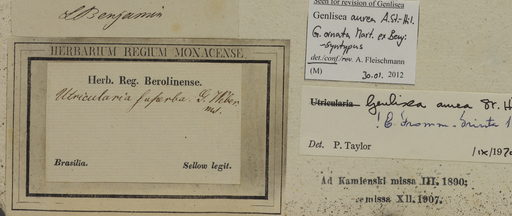 L Benjamin
HERBARIUM REGIUM MONACENSE.
Herb. Reg. Berolinense.
Utricularia superba.
Brasilia. Sellow legit.
Seen for revision of Genlisea
Genlisea aurea A.St.-Hil.
G. ornata Mart. ex Benj.
-syntypus
det./conf./rev. A. Fleischmann
(M) 30.01.2012
Utricularia Genlisea aurea St. H
Det. P. Taylor /ix/197
Ad Kamienski missa III. 1890;
remissa XII. 1907.